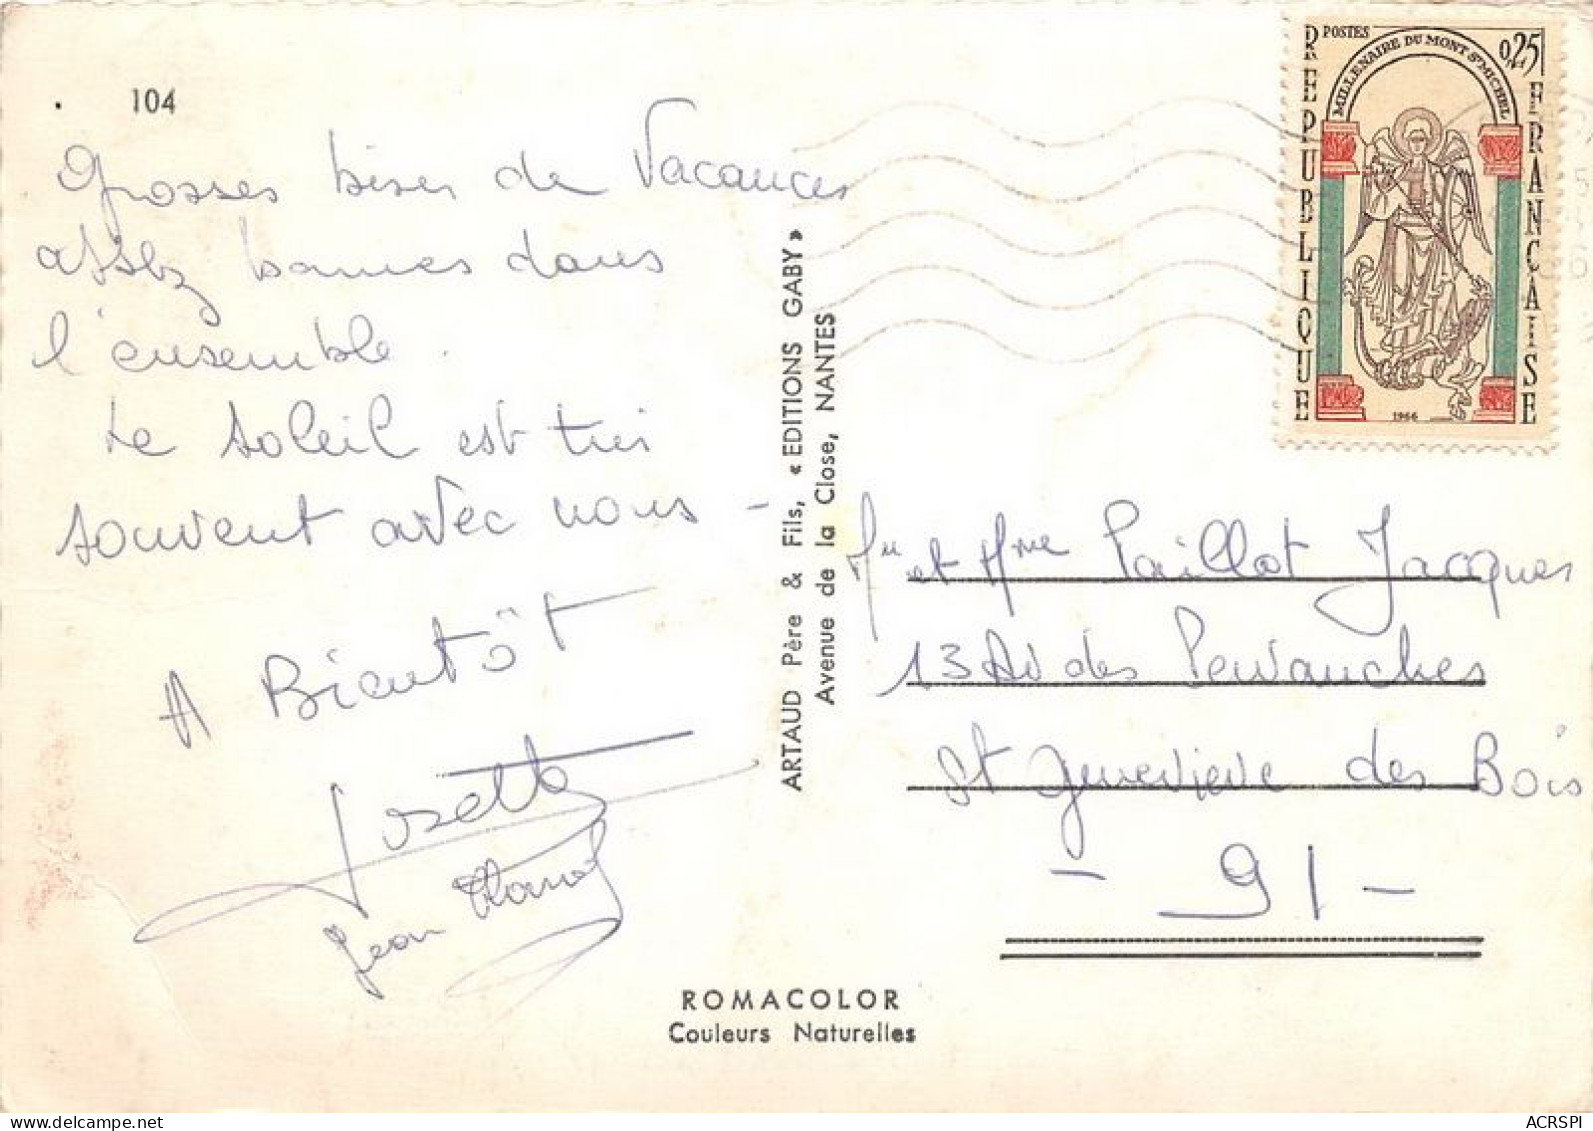 104
Grosses bises de Vacances
assez bonnes dans
l'ensemble.
Le soleil est très
souvent avec nous -
A Bientôt
Josette
Jean
ARTAUD Père & Fils, « EDITIONS GABY »
Avenue de la Close, NANTES
ROMACOLOR
Couleurs Naturelles
POSTES
0,25
MILLENAIRE DU MONT ST MICHEL
REPUBLIQUE
FRANÇAISE
1966
Mr et Mme Paillot Jacques
13 Av des Pervanches
St Genevieve des Bois
- 91 -
delcampe.net
ACRSPI